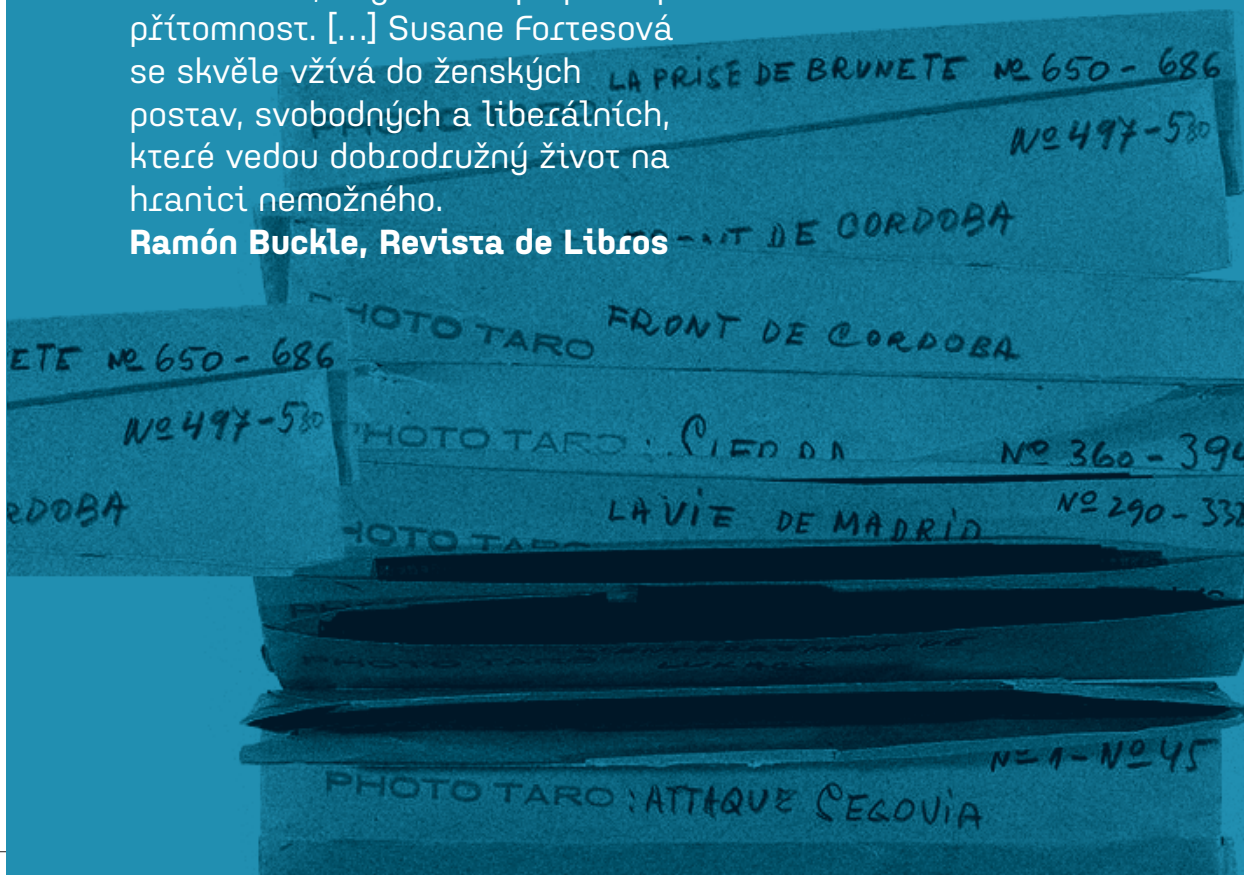 přítomnost. […] Susane Fortesová
se skvěle vžívá do ženských
postav, svobodných a liberálních,
které vedou dobrodružný život na
hranici nemožného.
Ramón Buckle, Revista de Libros
LA PRISE DE BRUNETE Nº 650 - 686
Nº 497-580
DE CORDOBA
PHOTO TARO FRONT DE CORDOBA
ETE Nº 650 - 686
Nº 497-580
RDOBA
PHOTO TARO: SIERRA Nº 360 - 394
LA VIE DE MADRID Nº 290 - 338
PHOTO TARO
PHOTO TARO
Nº 1 - Nº 45
PHOTO TARO: ATTAQUE SEGOVIA